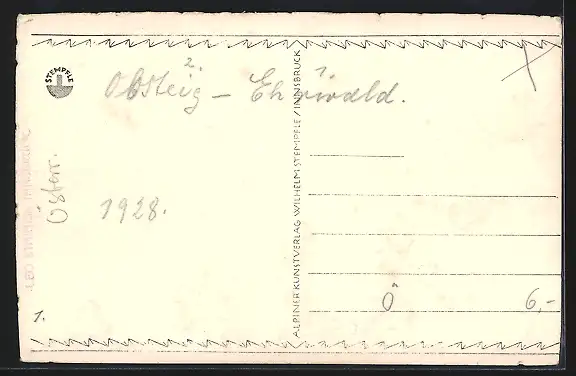 STEMPFLE
2 1
Obsteig – Ehrwald.
Österr.
1928.
ALPINER KUNSTVERLAG WILHELM STEMPFLE / INNSBRUCK
Ö
6,-
1.